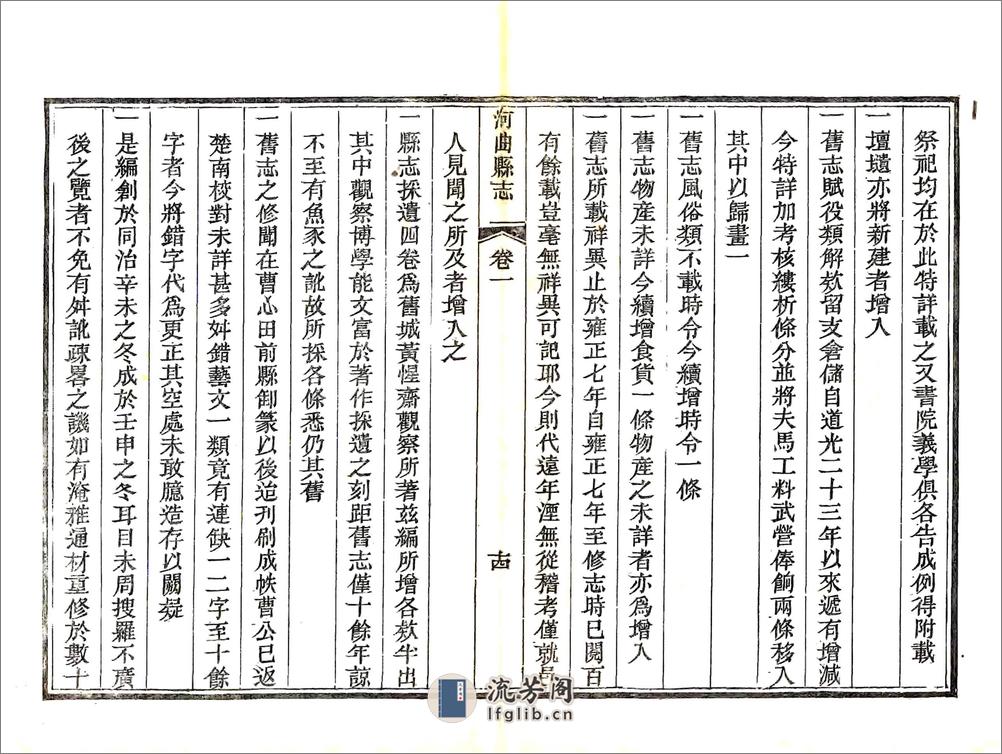 祭祀均在於此特詳載之又書院義學俱各告成例得附載
一壇壝亦將新建者增入
一舊志賦役類解欵留支倉儲自道光二十三年以來遞有增減
今特詳加考核縷析條分並將夫馬工料武營俸餉兩條移入
其中以歸畫一
一舊志風俗類不載時令今續增時令一條
一舊志物產未詳今續增食貨一條物產之未詳者亦爲增入
一舊志所載祥異止於雍正七年自雍正七年至修志時已閱百
有餘載豈毫無祥異可記耶今則代遠年湮無從稽考僅就
河曲縣志
卷一
十四
人見聞之所及者增入之
一縣志採遺四卷爲舊城黃惺齋觀察所著兹編所增各欵半出
其中觀察博學能文富於著作採遺之刻距舊志僅十餘年諒
不至有魚豕之訛故所採各條悉仍其舊
一舊志之修聞在曹心田前縣卸篆以後迨刋刷成帙曹公已返
楚南校對未詳甚多舛錯藝文一類竟有連缺一二字至十餘
字者今將錯字代爲更正其空處未敢臆造存以闕疑
一是編創於同治辛未之冬成於壬申之冬耳目未周搜羅不廣
後之覽者不免有舛訛疎畧之譏如有淹雅通材重修於數十
流芳阁
lfglib.cn